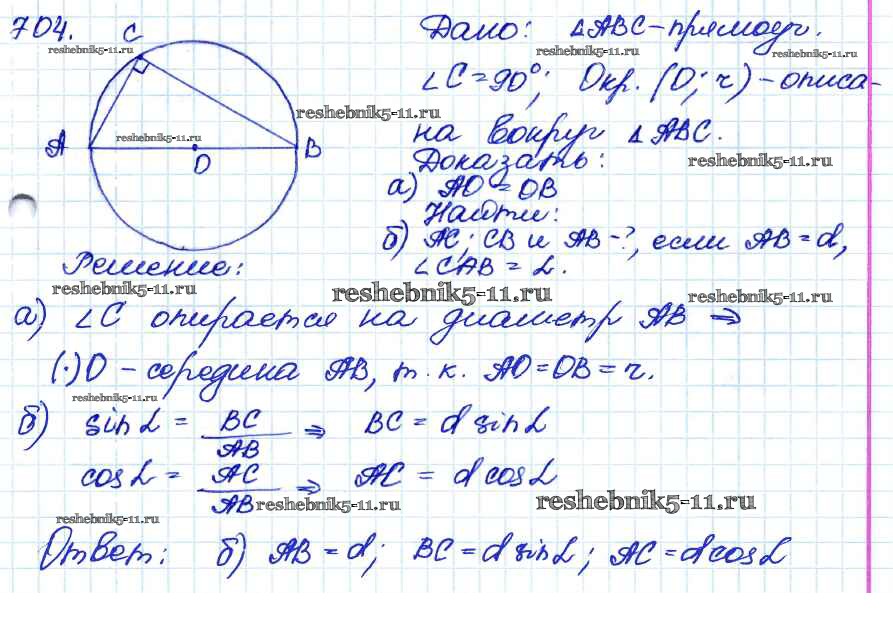 704.
C
reshebnik5-11.ru
A
reshebnik5-11.ru
O
B
Дано: △ABC-прямоуг.
reshebnik5-11.ru
∠C=90°; Окр. (O; r) - описа-
reshebnik5-11.ru
на вокруг △ABC.
Доказать:
reshebnik5-11.ru
а) AO = OB
Найти:
б) AC; CB и AB-?, если AB=d,
∠CAB = α.
Решение:
reshebnik5-11.ru
reshebnik5-11.ru
reshebnik5-11.ru
а) ∠C опирается на диаметр AB ⇒
(·)O - середина AB, т.к. AO=OB=r.
reshebnik5-11.ru
б) sin α = BC/AB ⇒ BC = d sin α
cos α = AC/AB ⇒ AC = d cos α
reshebnik5-11.ru
reshebnik5-11.ru
reshebnik5-11.ru
Ответ: б) AB=d; BC=d sin α; AC=d cos α